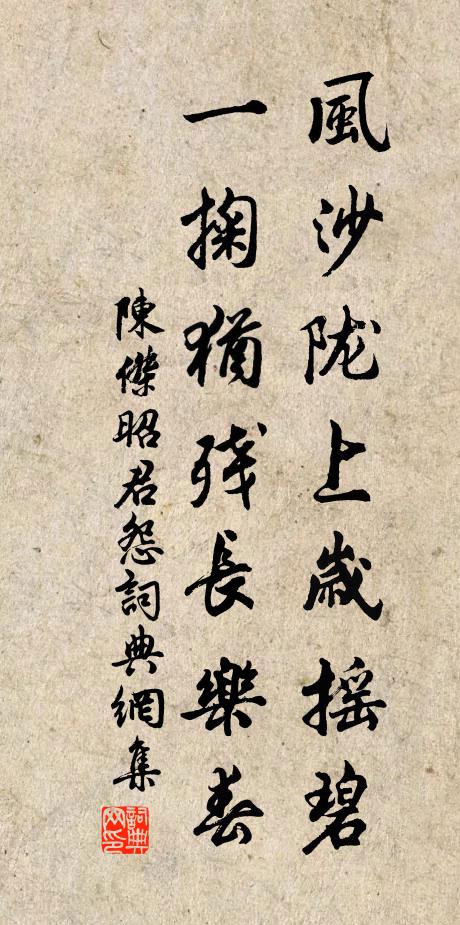 風沙陇上歲揺碧
一掬猶残長樂春
陳傑昭君怨詞典網集
詞典
网印